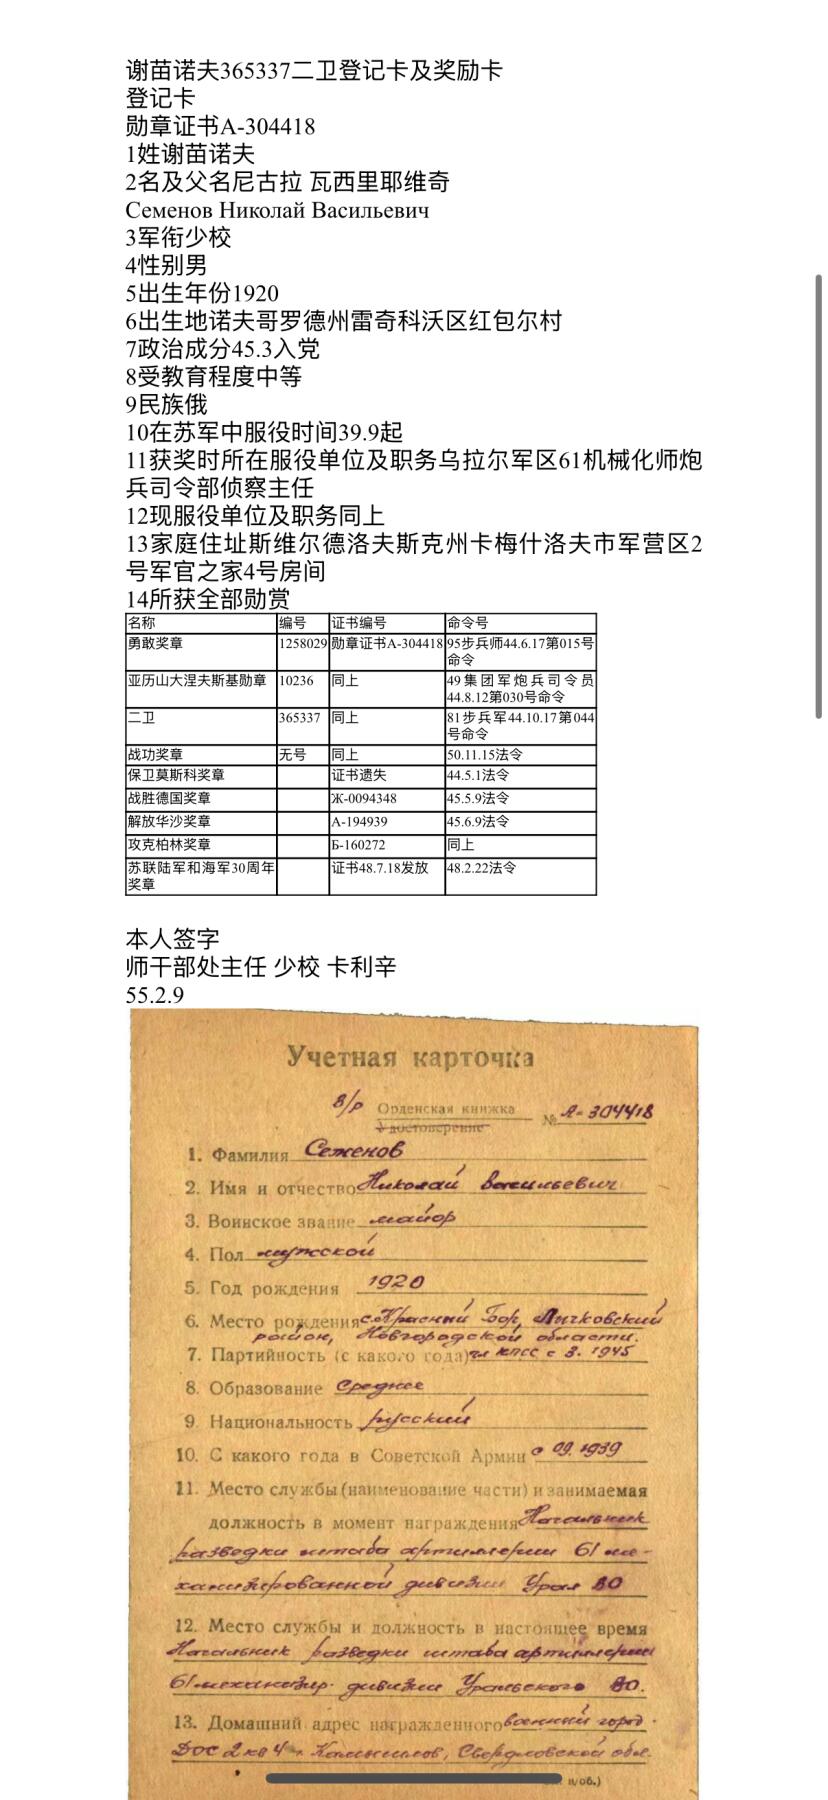 谢苗诺夫365337二卫登记卡及奖励卡
登记卡
勋章证书А-304418
1姓谢苗诺夫
2名及父名尼古拉 瓦西里耶维奇
Семенов Николай Васильевич
3军衔少校
4性别男
5出生年份1920
6出生地诺夫哥罗德州雷奇科沃区红包尔村
7政治成分45.3入党
8受教育程度中等
9民族俄
10在苏军中服役时间39.9起
11获奖时所在服役单位及职务乌拉尔军区61机械化师炮
兵司令部侦察主任
12现服役单位及职务同上
13家庭住址斯维尔德洛夫斯克州卡梅什洛夫市军营区2
号军官之家4号房间
14所获全部勋赏
名称 编号 证书编号 命令号
勇敢奖章 1258029 勋章证书А-304418 95步兵师44.6.17第015号
命令
亚历山大涅夫斯基勋章 10236 同上 49集团军炮兵司令员
44.8.12第030号命令
二卫 365337 同上 81步兵军44.10.17第044
号命令
战功奖章 无号 同上 50.11.15法令
保卫莫斯科奖章 证书遗失 44.5.1法令
战胜德国奖章 Ж-0094348 45.5.9法令
解放华沙奖章 А-194939 45.6.9法令
攻克柏林奖章 Б-160272 同上
苏联陆军和海军30周年 证书48.7.18发放 48.2.22法令
奖章
本人签字
师干部处主任 少校 卡利辛
55.2.9
Учетная карточка
в/р Орденская книжка № А-304418
Удостоверение
1. Фамилия Семенов
2. Имя и отчество Николай Васильевич
3. Воинское звание майор
4. Пол мужской
5. Год рождения 1920
6. Место рождения с. Красный Бор, Лычковский
район, Новгородской области.
7. Партийность (с какого года) чл КПСС с 3. 1945
8. Образование Среднее
9. Национальность русский
10. С какого года в Советской Армии с 09. 1939
11. Место службы (наименование части) и занимаемая
должность в момент награждения Начальник
разведки штаба артиллерии 61 ме-
ханизированной дивизии Урал ВО
12. Место службы и должность в настоящее время
Начальник разведки штаба артиллерии
61 механизир. дивизии Уральского ВО.
13. Домашний адрес награжденного военный город.
ДОС 2 кв 4 г. Камышлов, Свердловской обл.
н/об.)